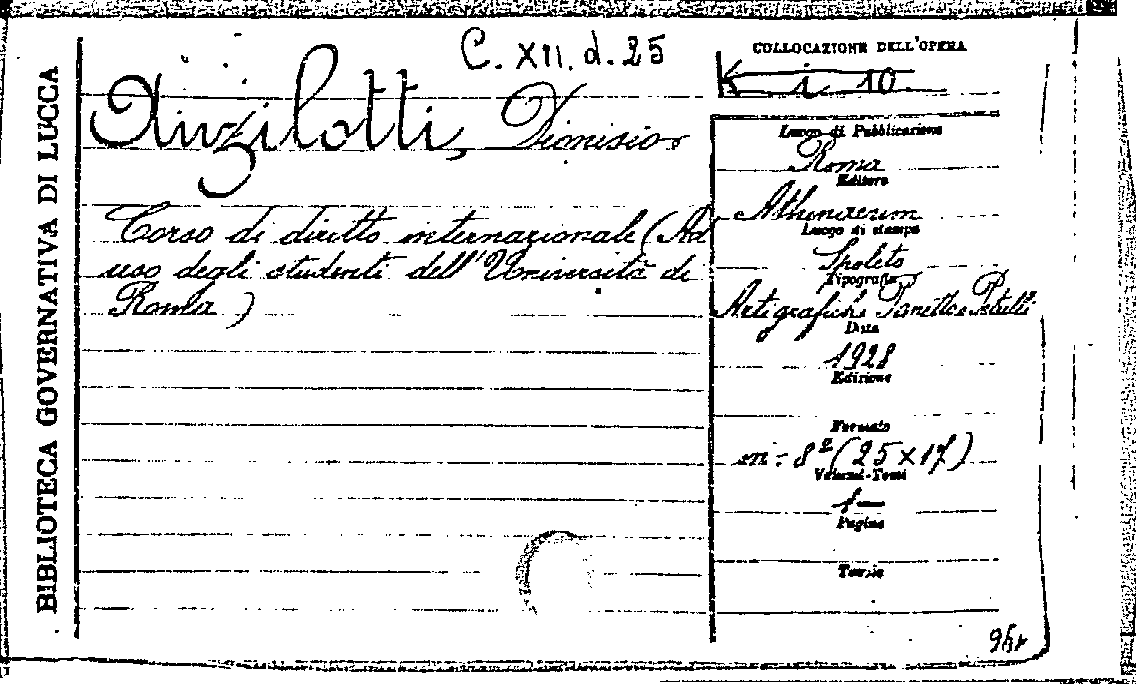 BIBLIOTECA GOVERNATIVA DI LUCCA
C. XII. d. 25
Anzilotti, Dionisio
Corso di diritto internazionale (Ad
uso degli studenti dell'Università di
Roma)
COLLOCAZIONE DELL'OPERA
K i 10
Luogo di Pubblicazione
Roma
Editore
Athenaeum
Luogo di stampa
Spoleto
Tipografia
Arti grafiche Panetto e Petrelli
Data
1928
Edizione
Formato
in-8º (25×17)
Volumi-Tomi
1
Pagine
Tavole